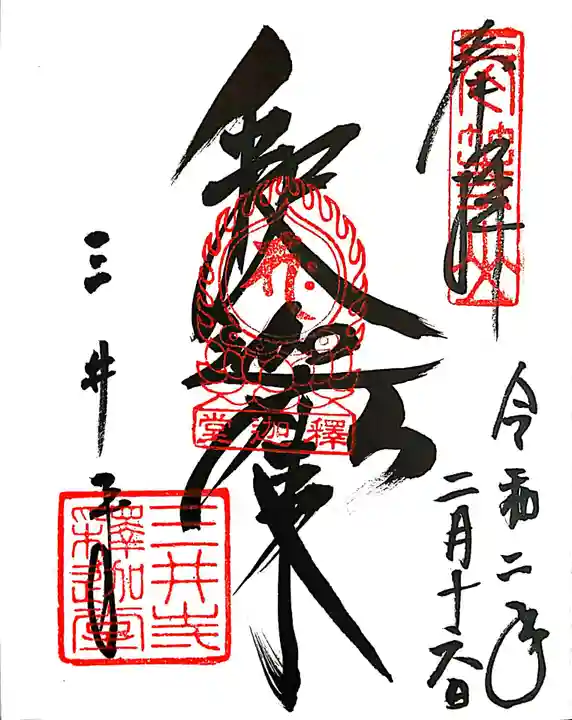 奉拝
令和二年
二月十六日
釈迦如来
釋迦堂
三井寺
三井寺
釋迦堂